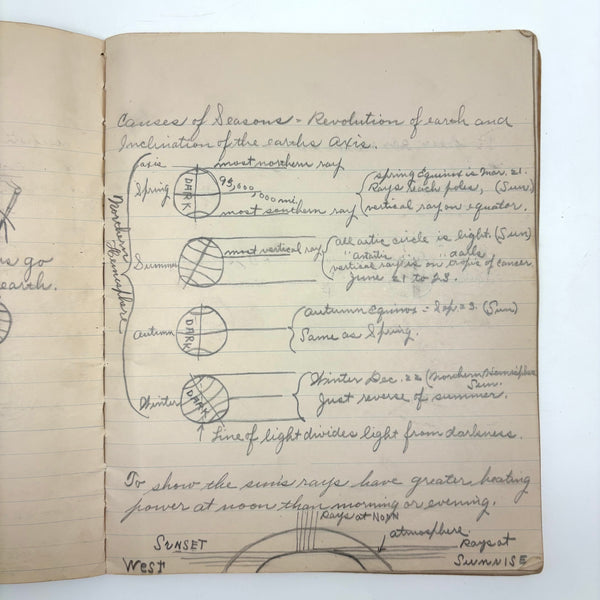 Causes of Seasons - Revolution of earth and
Inclination of the earths axis.
Northern Hemisphere
axis most northern ray
Spring DARK 93,000,000 mi.
most southern ray
Spring Equinox is Mar. 21.
Rays reach poles, (Sun)
vertical ray on equator.
Summer most vertical ray
all artic circle is light. (Sun)
" antartic " " dark
vertical ray is on tropic of cancer
June 21 to 23.
Autumn DARK
Autumn Equinox = Sep 23. (Sun)
Same as Spring.
Winter DARK
Winter Dec. 22 (Northern Hemisphere
Sun.
Just reverse of summer.
Line of light divides light from darkness.
To show the sun's rays have greater heating
power at noon than morning or evening.
Rays at NOON
atmosphere
SUNSET
Rays at
West
SUNRISE
s go
earth.